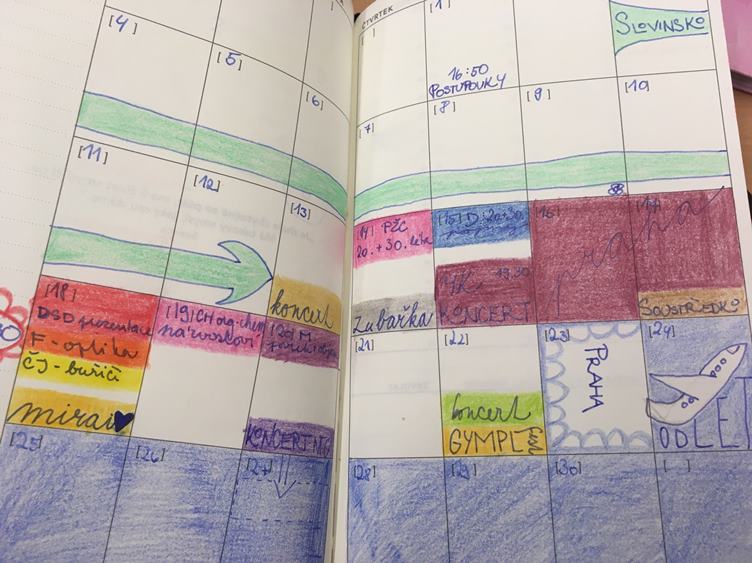 ČTVRTEK
[1]
SLOVINSKO
16:50
POSTUPOVKY
[4]
[5]
[6]
[7]
[8]
[9]
[10]
[11]
[12]
[13]
koncert
[14] PŽC
20. + 30. léta
Zubařka
[15] D: 20. + 30.
19,30
KONCERT
[16]
[17]
praha
SOUSTŘEDKO
[18]
DSD prezentace
F - optika
ČJ - buřiči
mirai
[19] CH org. chem
názvosloví
[20] M
KONCERT NG
[21]
[22]
koncert
GYMPL
fest
[23]
PRAHA
[24]
ODLET
[25]
[26]
[27]
[28]
[29]
[30]
[ ]